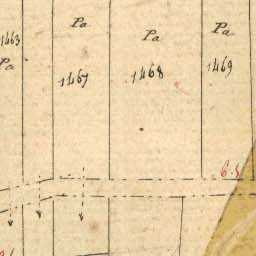 Pa
Pa
Pa
1463
Pa
1467
1468
1469